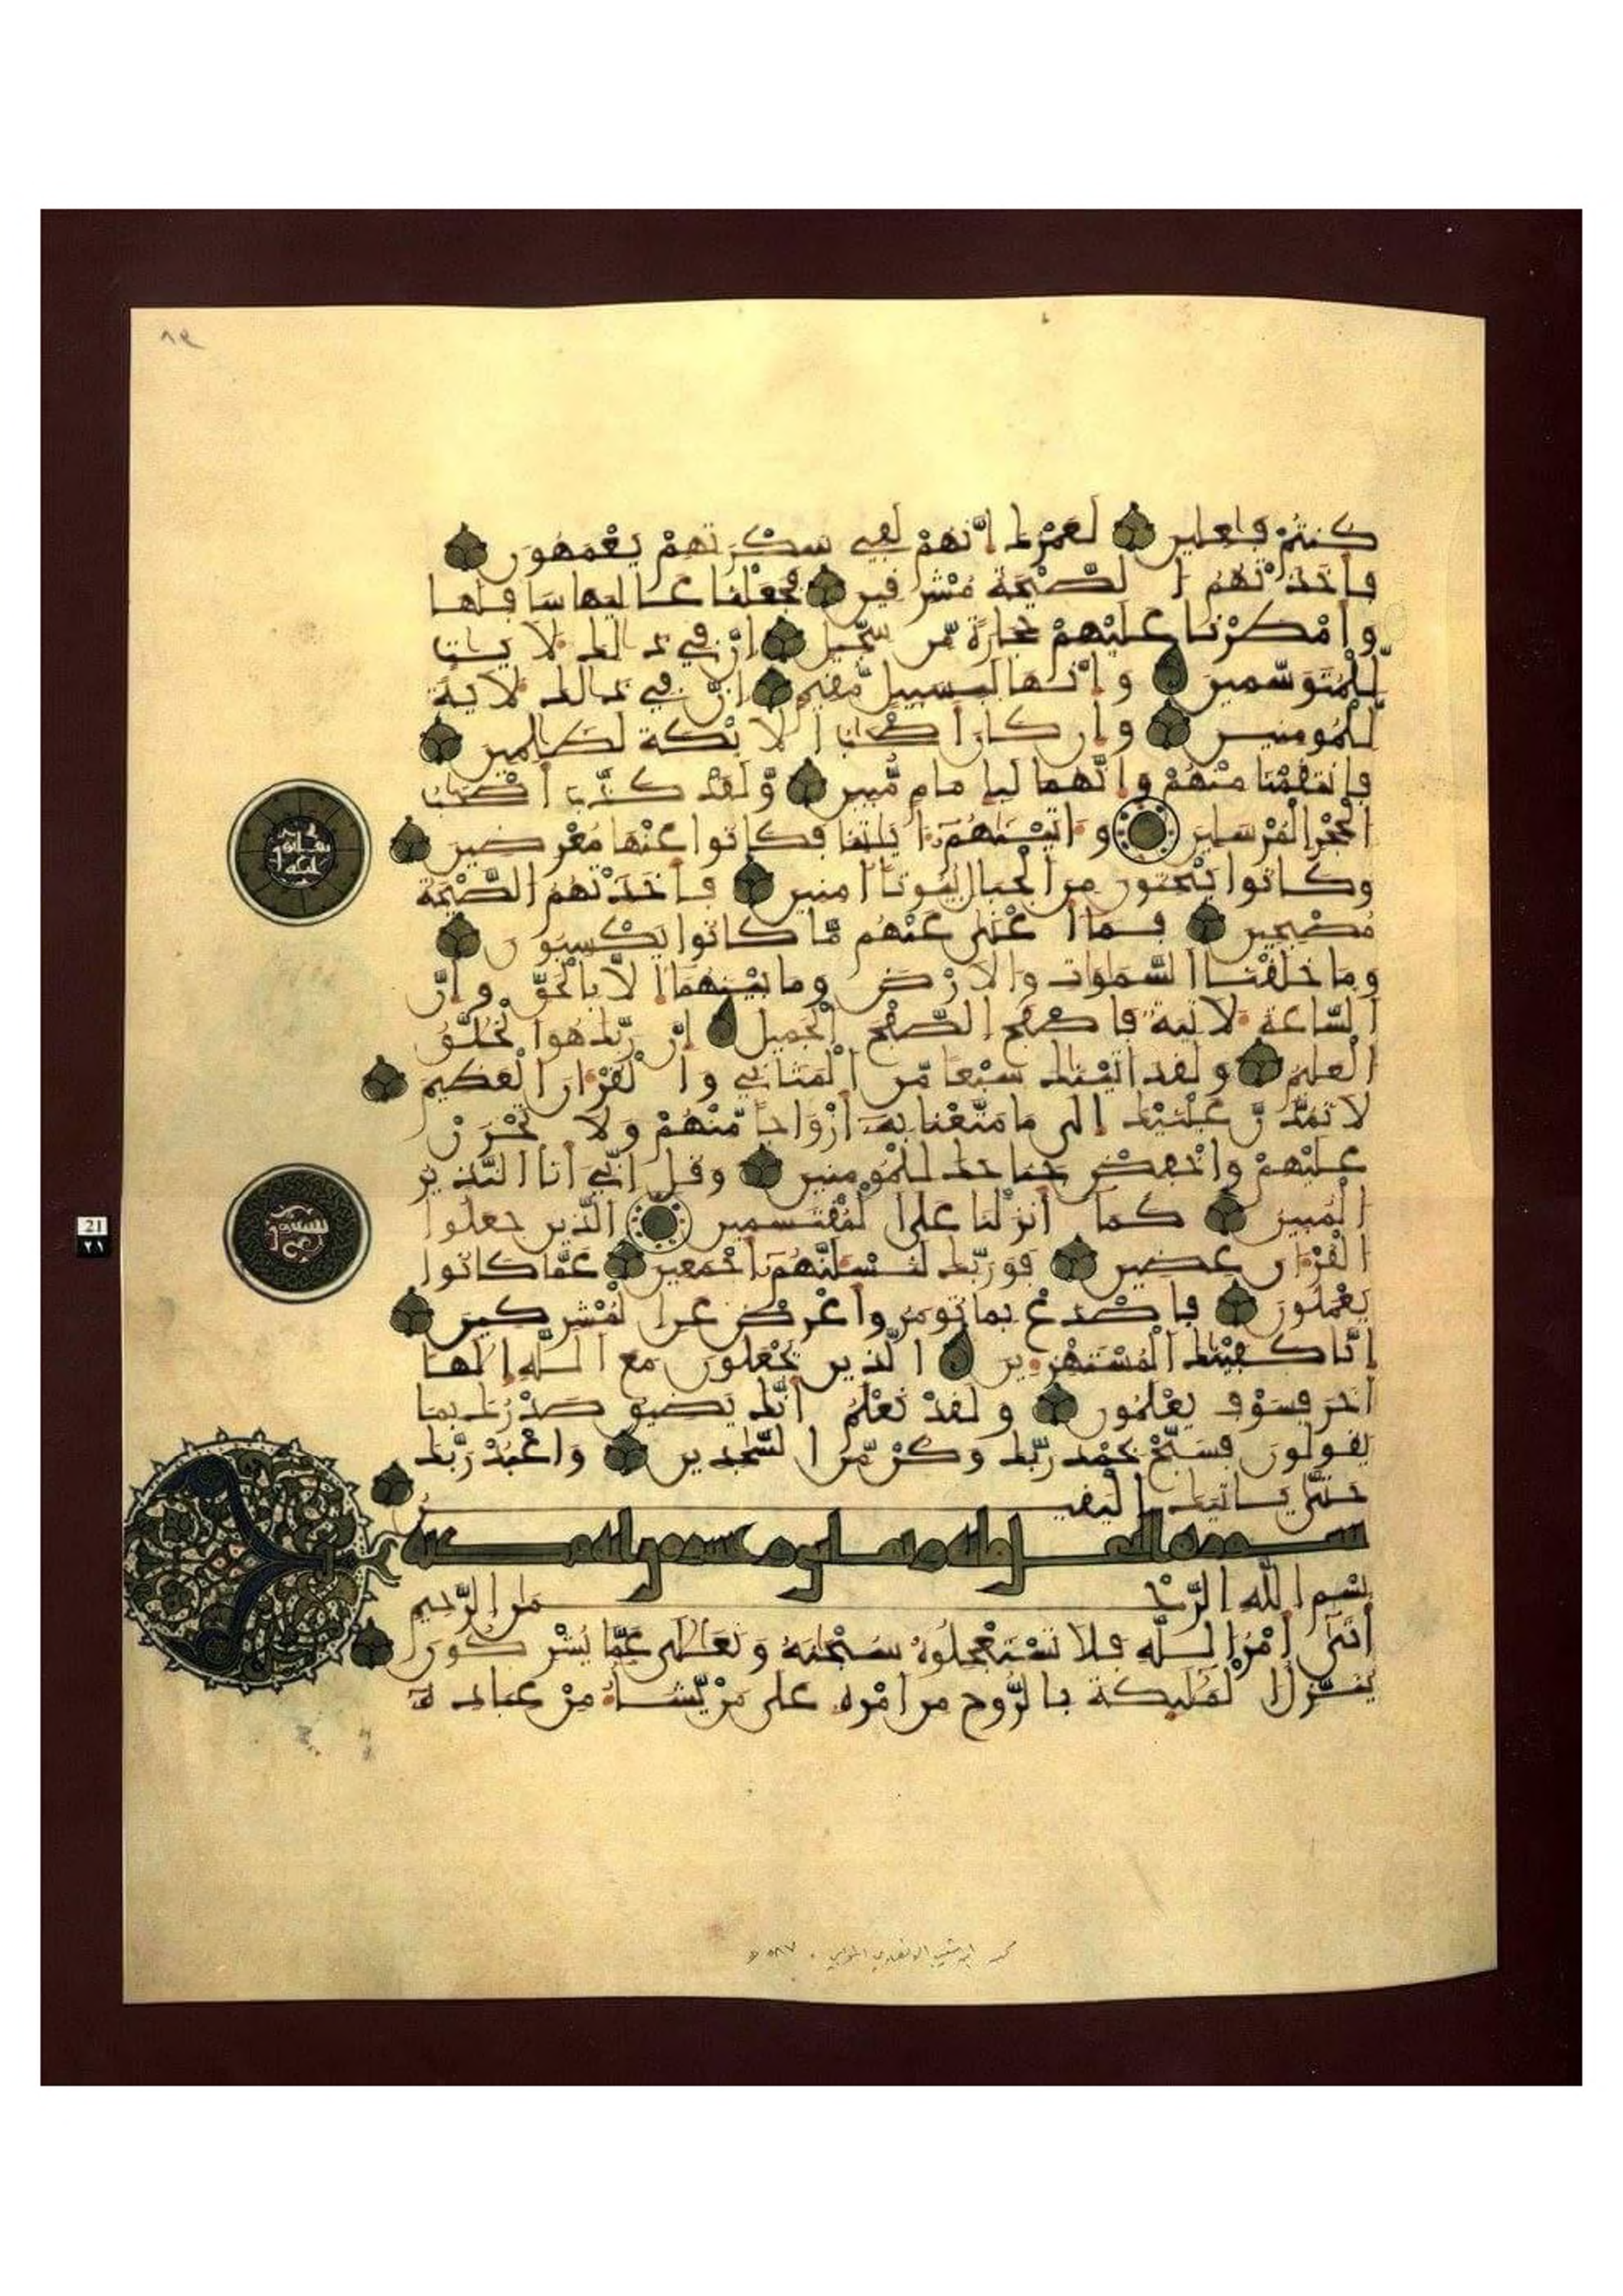 ٨٩
كنتم فاعلين لعمرك إنهم لفي سكرتهم يعمهون
فأخذتهم الصيحة مشرقين فجعلنا عاليها سافلها
وأمطرنا عليهم حجارة من سجيل إن في ذالك لآيت
للمتوسمين وإنها لبسبيل مقيم إن في ذالك لآية
للمومنين وإن كان أصحب الايكة لظلمين
فانتقمنا منهم وإنهما لبإمام مبين ولقد كذب أصحب
الحجر المرسلين واتينهم ءايتنا فكانوا عنها معرضين
وكانوا ينحتون من الجبال بيوتا امنين فأخذتهم الصيحة
مصبحين فما أغنى عنهم ما كانوا يكسبون
وما خلقنا السماوات والارض وما بينهما إلا بالحق وإن
الساعة لآتية فاصفح الصفح الجميل إن ربك هو الخلق
العليم ولقد اتينك سبعا من المثاني والقرءان العظيم
لا تمدن عينيك إلى ما متعنا به أزواجا منهم ولا تحزن
عليهم واخفض جناحك للمومنين وقل إني أنا النذير
المبين كما أنزلنا على المقتسمين الذين جعلوا
القرءان عضين فوربك لنسئلنهم أجمعين عما كانوا
يعملون فاصدع بما تومر وأعرض عن المشركين
إنا كفينك المستهزءين الذين يجعلون مع الله إلها
اخر فسوف يعلمون ولقد نعلم أنك يضيق صدرك بما
يقولون فسبح بحمد ربك وكن من السجدين واعبد ربك
حتى ياتيك اليقين
سورة النحل مائة وثماني وعشرون اية مكية
بسم الله الرحمن الرحيم
أتى أمر الله فلا تستعجلوه سبحنه وتعلى عما يشركون
ينزل الملئكة بالروح من أمره على من يشاء من عباده
21
٢١